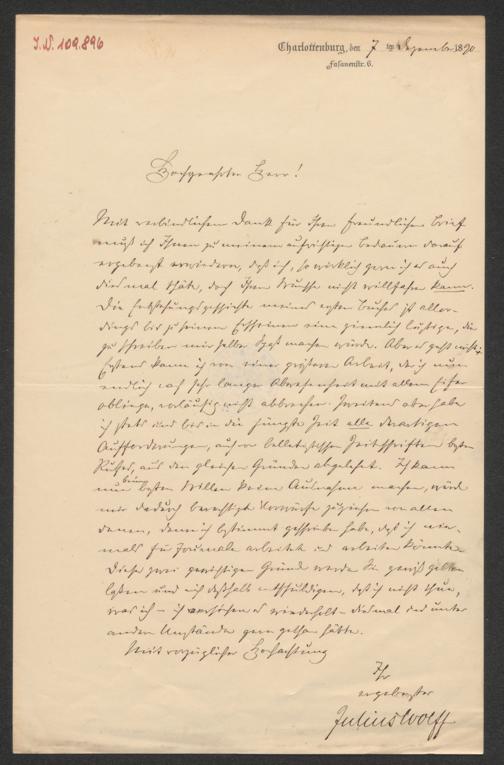 I.N. 109.896
Charlottenburg, den 7 ten Dezember 1890.
Fasanenstr. 6.
Hochgeehrter Herr!
Mit verbindlichem Dank für Ihren freundlichen Brief
muß ich Ihnen zu meinem aufrichtigen Bedauern darauf
ergebenst erwiedern, daß ich, so wirklich gern ich es auch
diesmal thäte, doch Ihrem Wunsche nicht willfahren kann.
Die Entstehungsgeschichte meines ersten Buches ist aller-
dings bis zu seinem Erscheinen eine ziemlich lustige, die
zu schreiben mir selber Spaß machen würde. Aber es geht nicht.
Erstens kann ich von einer größeren Arbeit, der ich nun
endlich nach sehr langer Abwesenheit mit allem Eifer
obliege, vorläufig nicht abbrechen. Zweitens aber habe
ich stets und bis in die jüngste Zeit alle derartigen
Aufforderungen, auch von belletristischen Zeitschriften besten
Rufes, aus den gleichen Gründen abgelehnt. Ich kann
nun beim besten Willen keine Ausnahme machen, würde
mir dadurch berechtigte Vorwürfe zuziehen von allen
denen, denen ich bestimmt geschrieben habe, daß ich nie-
mals für Journale arbeitete und arbeiten könnte.
Diese zwei gewichtigen Gründe werden Sie gewiß gelten
lassen und mich deßhalb entschuldigen, daß ich nicht thue,
was ich – ich versichere es wiederholt – diesmal und unter
andern Umständen gern gethan hätte.
Mit vorzüglicher Hochachtung
Ihr
ergebenster
Julius Wolff